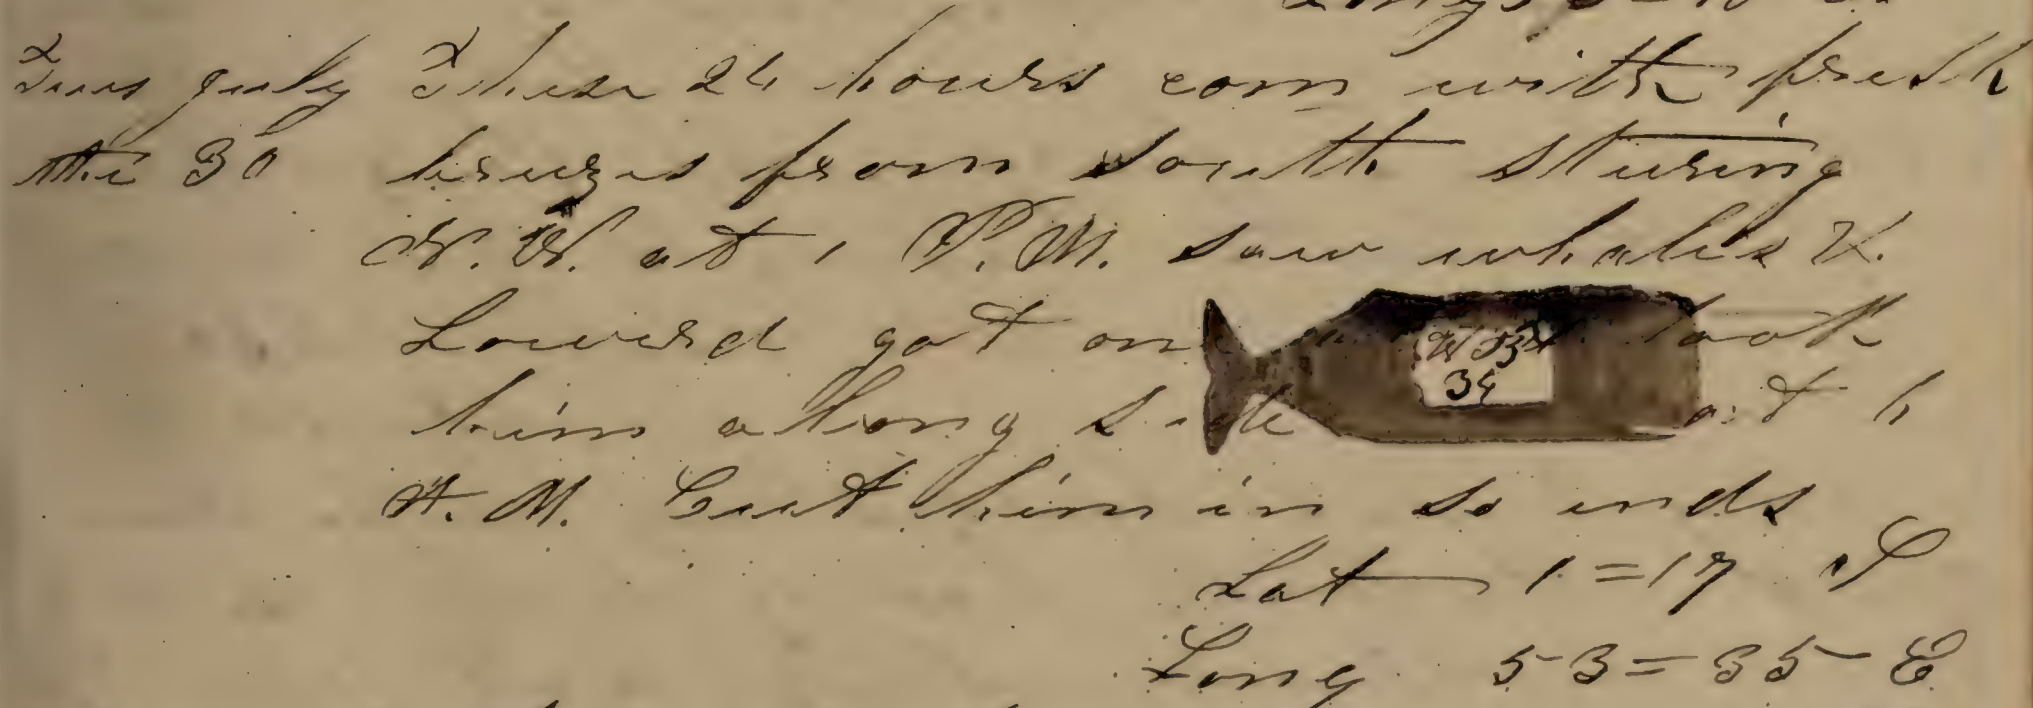 Tues July These 24 hours com with fresh
the 30 breezes from South Stering
N. W. at 1 P. M. saw whales &
Lowerd got one took
him along side at 4
A. M. Cut him in so ends
34
Lat 1=17 S
Long 53=35 E